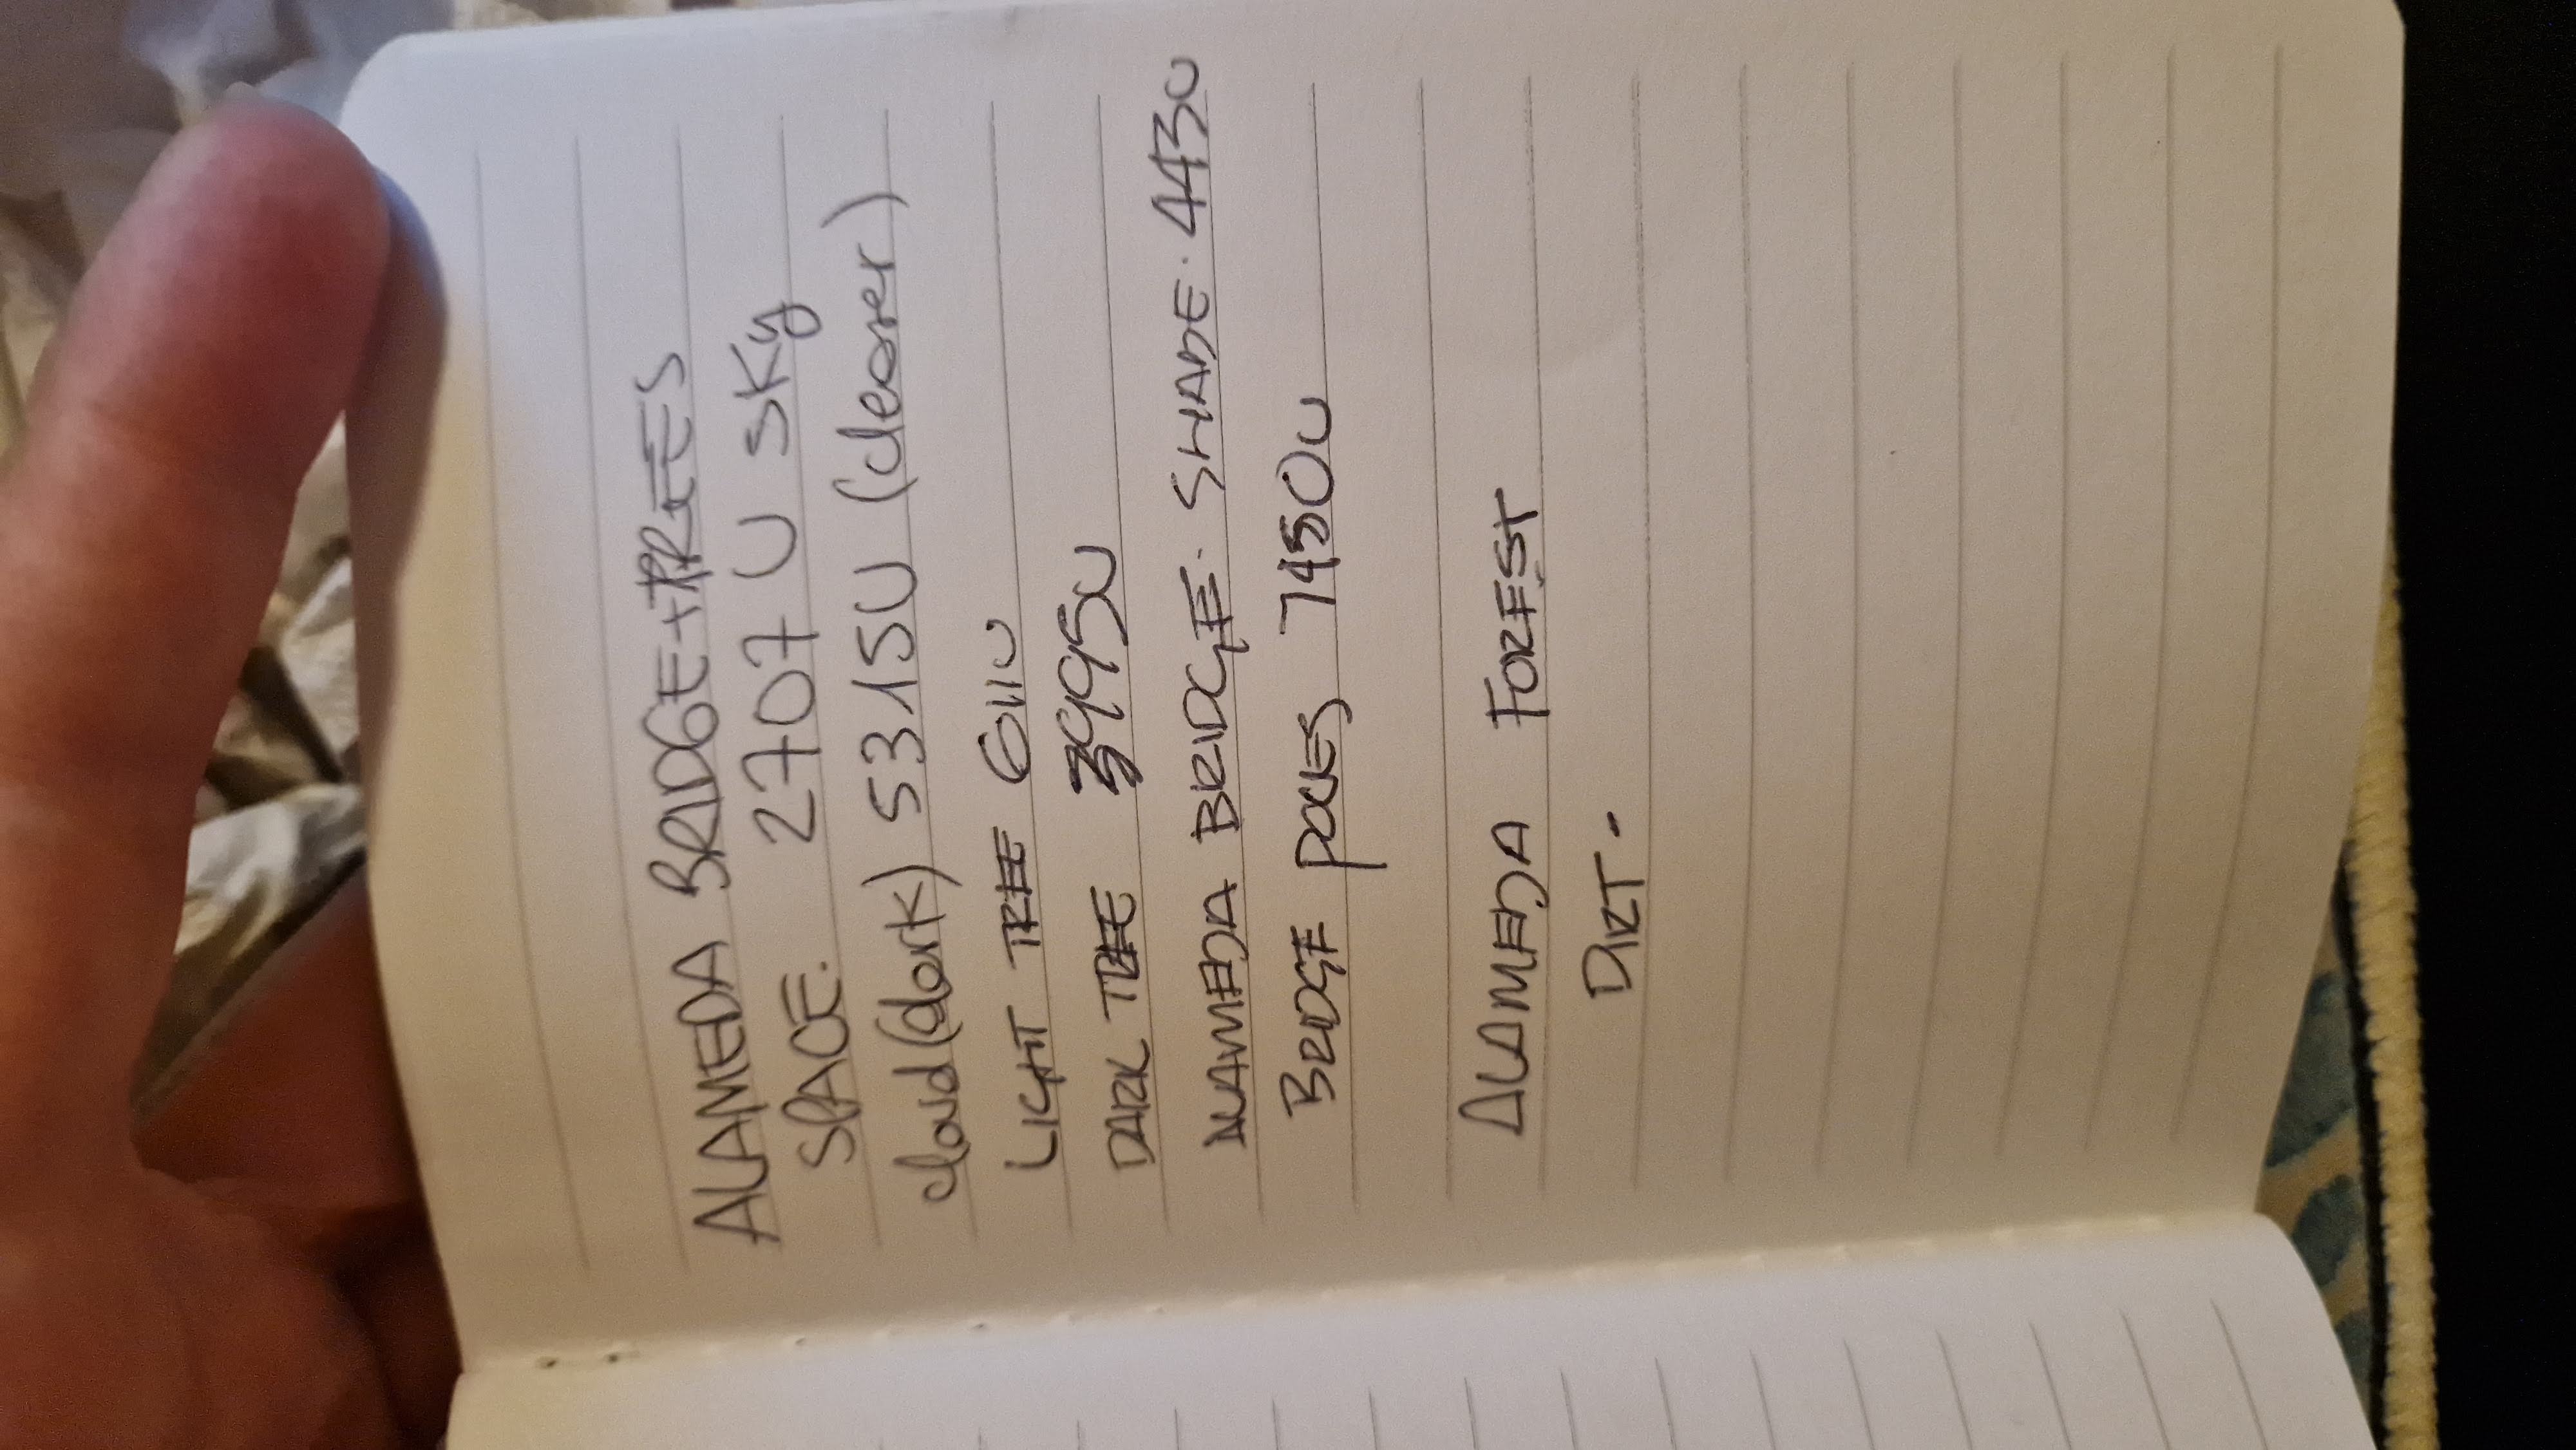 ALAMEDA BRIDGE + TREES
SPACE. 2707 U SKy
cloud (dark) 5315U (clearer)
LIGHT TREE 611U
DARK TREE 3995U
ALAMEDA BRIDGE. SHADE. 443U
BRIDGE POLES 7450U
ALAMEDA FOREST
DIRT.